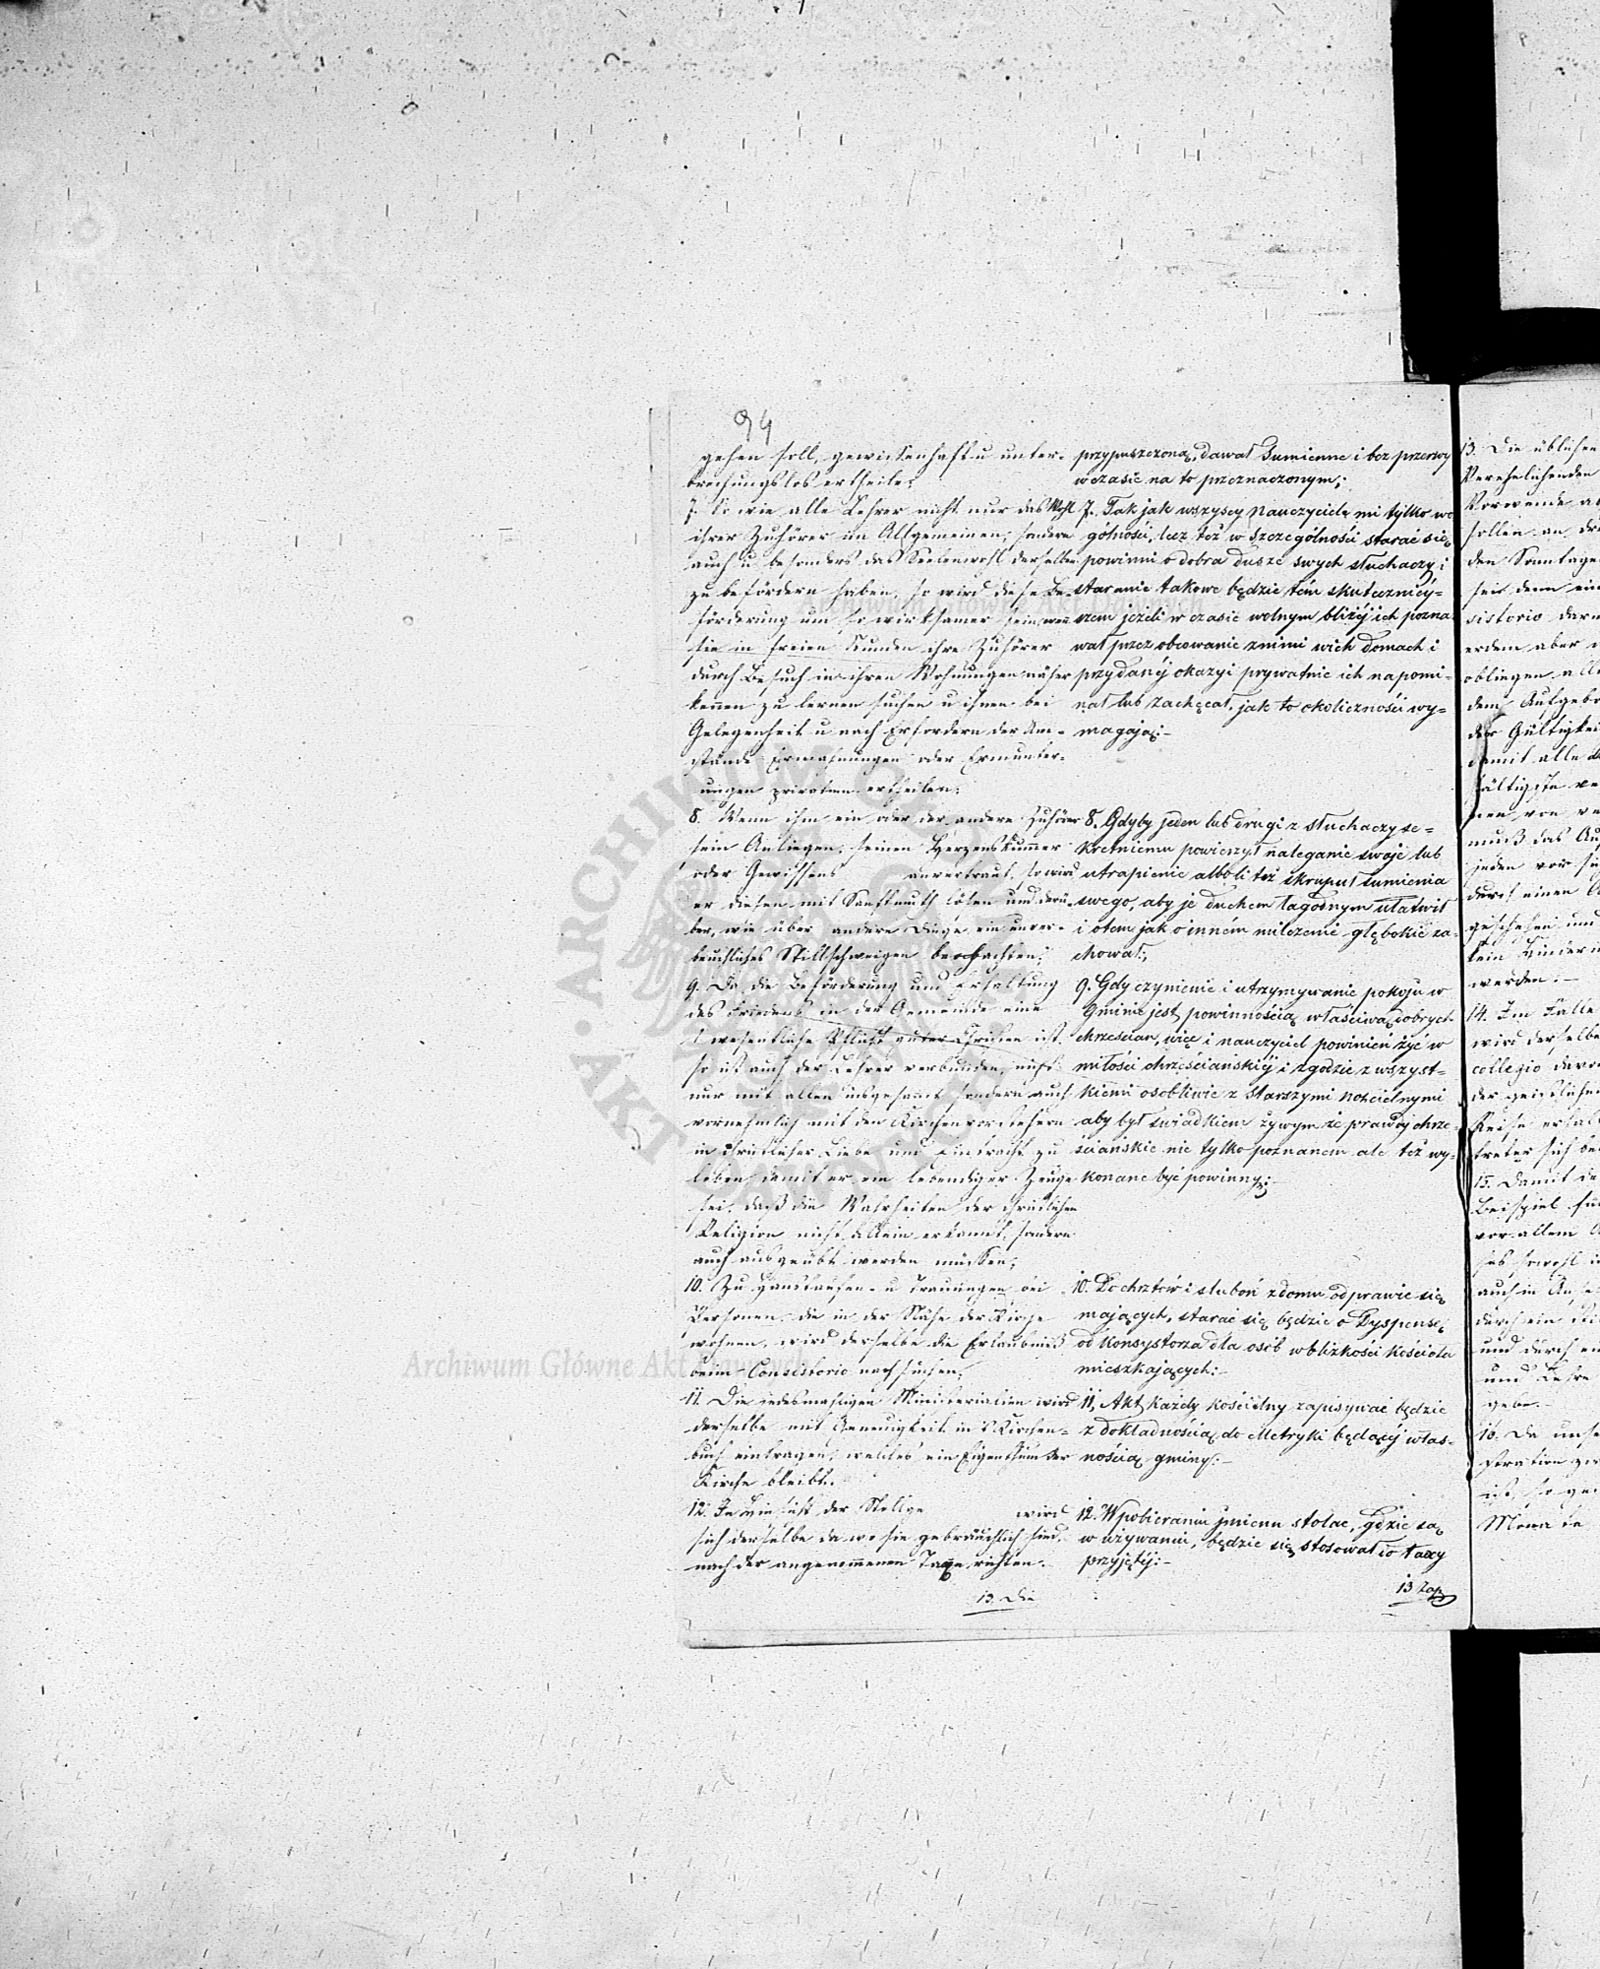 94
gehen soll, gewissenhaft u unter-
brechungslos ertheile;
7. So wie alle Lehrer nicht nur das Wohl
ihrer Zuhörer im Allgemeinen, sondern
auch u besonders das Seelenwohl derselben
zu befördern haben, so wird diese Be-
förderung um so wirksamer sein, wenn
sie in freien Stunden ihre Zuhörer
durch Besuch in ihren Wohnungen näher
kennen zu lernen suchen u ihnen bei
Gelegenheit u nach Erfordern der Um-
stände Ermahnungen oder Ermunter-
ungen privatim ertheilen;
8. Wenn ihm ein oder der andere Zuhörer
sein Anliegen, seinen Herzenskummer
oder Gewissens anvertraut, so wird
er diesen mit Sanftmuth lösen und darü-
ber, wie über andere Dinge ein unver-
bruchliches Stillschweigen beobachten;
9. Da die Beförderung und Erhaltung
des Friedens in der Gemeinde eine
wesentliche Pflicht guter Christen ist,
so ist auch der Lehrer verbunden, nicht
nur mit allen insgesammt sondern auch
vornehmlich mit den Kirchenvorstehern
in christlicher Liebe und Eintracht zu
leben, damit er ein lebendiger Zeuge
sei, daß die Wahrheiten der christlichen
Religion nicht allein erkannt, sondern
auch ausgeübt werden müssen;
10. Zu Haustaufen u Trauungen bei
Personen, die in der Nähe der Kirche
wohnen, wird derselbe die Erlaubniß
beim Consistorio nachsuchen;
11. Die jedesmahligen Ministerialien wird
derselbe mit Genauigkeit in's Kirchen-
buch eintragen, welches ein Eigenthum der
Kirche bleibt.
12. In Hinsicht der Stollgebühren wird
sich derselbe da wo sie gebräuchlich sind,
nach der angenommenen Taxe richten.
13. Die
przypuszczoną, dawał Sumienne i bez przerwy
w czasie na to przeznaczonym;
7. Tak jak wszyscy Nauczyciele ni tylko wo
gólności, lecz też w szczególności starać się
powinni o dobra dusze swych słuchaczy i
staranie takowe będzie tém skuteczniéy-
szem jeżeli w czasie wolnym bliżéj ich pozna
wał przez obcowanie z nimi w ich domach i
przy danéj okazyi prywatnie ich napomi-
nał lub zachęcał, jak to okoliczności wy-
magają;-
8. Gdyby jeden lub drugi z słuchaczy se-
kretniemu powierzył naleganie swoje lub
utrapienie alboli też skrupuł sumienia
swego, aby je duchem łagodnym ułatwił
i o tem jak o inném milczenie głębokie za-
chował;
9. Gdy czynienie i utrzymywanie pokoju w
Gminie jest powinnością właściwą dobrych
chrześcian, więc i nauczyciel powinien żyć w
miłości chrześciańskiéj i zgodzie z wszyst-
kiemi osobliwie z Starszymi kościelnymi
aby był świadkiem żywym że prawdy chrze-
ściańskie nie tylko poznanem ale też wy-
konane być powinny;-
10. Do chrztów i ślubów z domu odprawić się
mających, starać się będzie o Dyspensę
od Konsystorza dla osób w bliskości kościoła
mieszkających:-
11, Akt każdy kościelny zapisywać będzie
z dokładnością do Metryki będącéj włas-
nością gminy:-
12. W pobieraniu jmienu stolae, gdzie są
w używaniu, będzie się stosował do taxy
przyjętéj:-
13 Zap
13. Die üblichen
Verehelichenden
Vorwende
sollen an
den Sonntagen
sei denn
sistorio
erdem aber
obliegen, alle
dem Aufgebo
der Gültigkei
damit alle
von
muß das Au
jeden vor
durch einen
geschehen und
kein Hinder
werden.-
14. Im Falle
wird derselbe
collegio davo
der geistlichen
Reise
treter sich
15. Damit
Beispiel
vor allem
sowohl
auch in
durch
und durch
und Lehre
gebe.-
16. Da
ist, so
Mona te
Archiwum Główne Akt Dawnych
Archiwum Główne Akt Dawnych